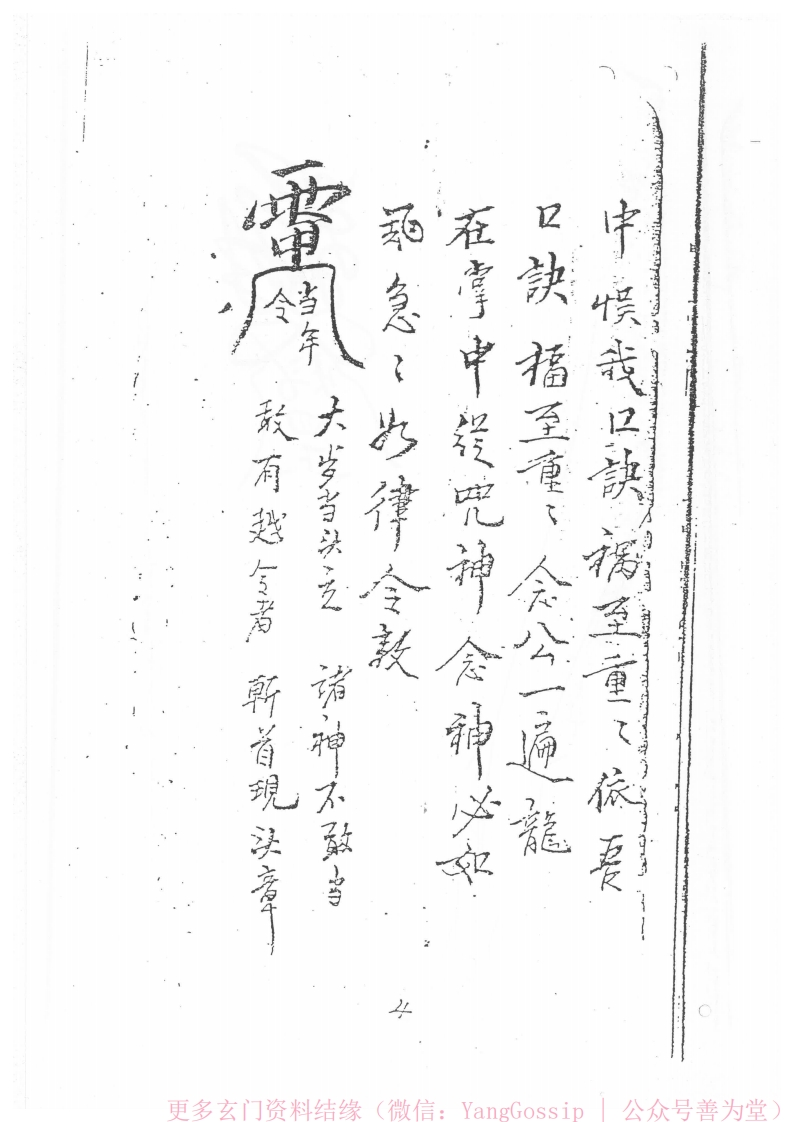 中悮我口訣禍至重〻依吾
口訣福至重〻念公一遍龍
在掌中從咒神念神必如
急〻如律令敕
當年
令
大步当头立 諸神不敢当
敢有越令者 斬首現决章
4
更多玄门资料结缘（微信：YangGossip | 公众号善为堂）